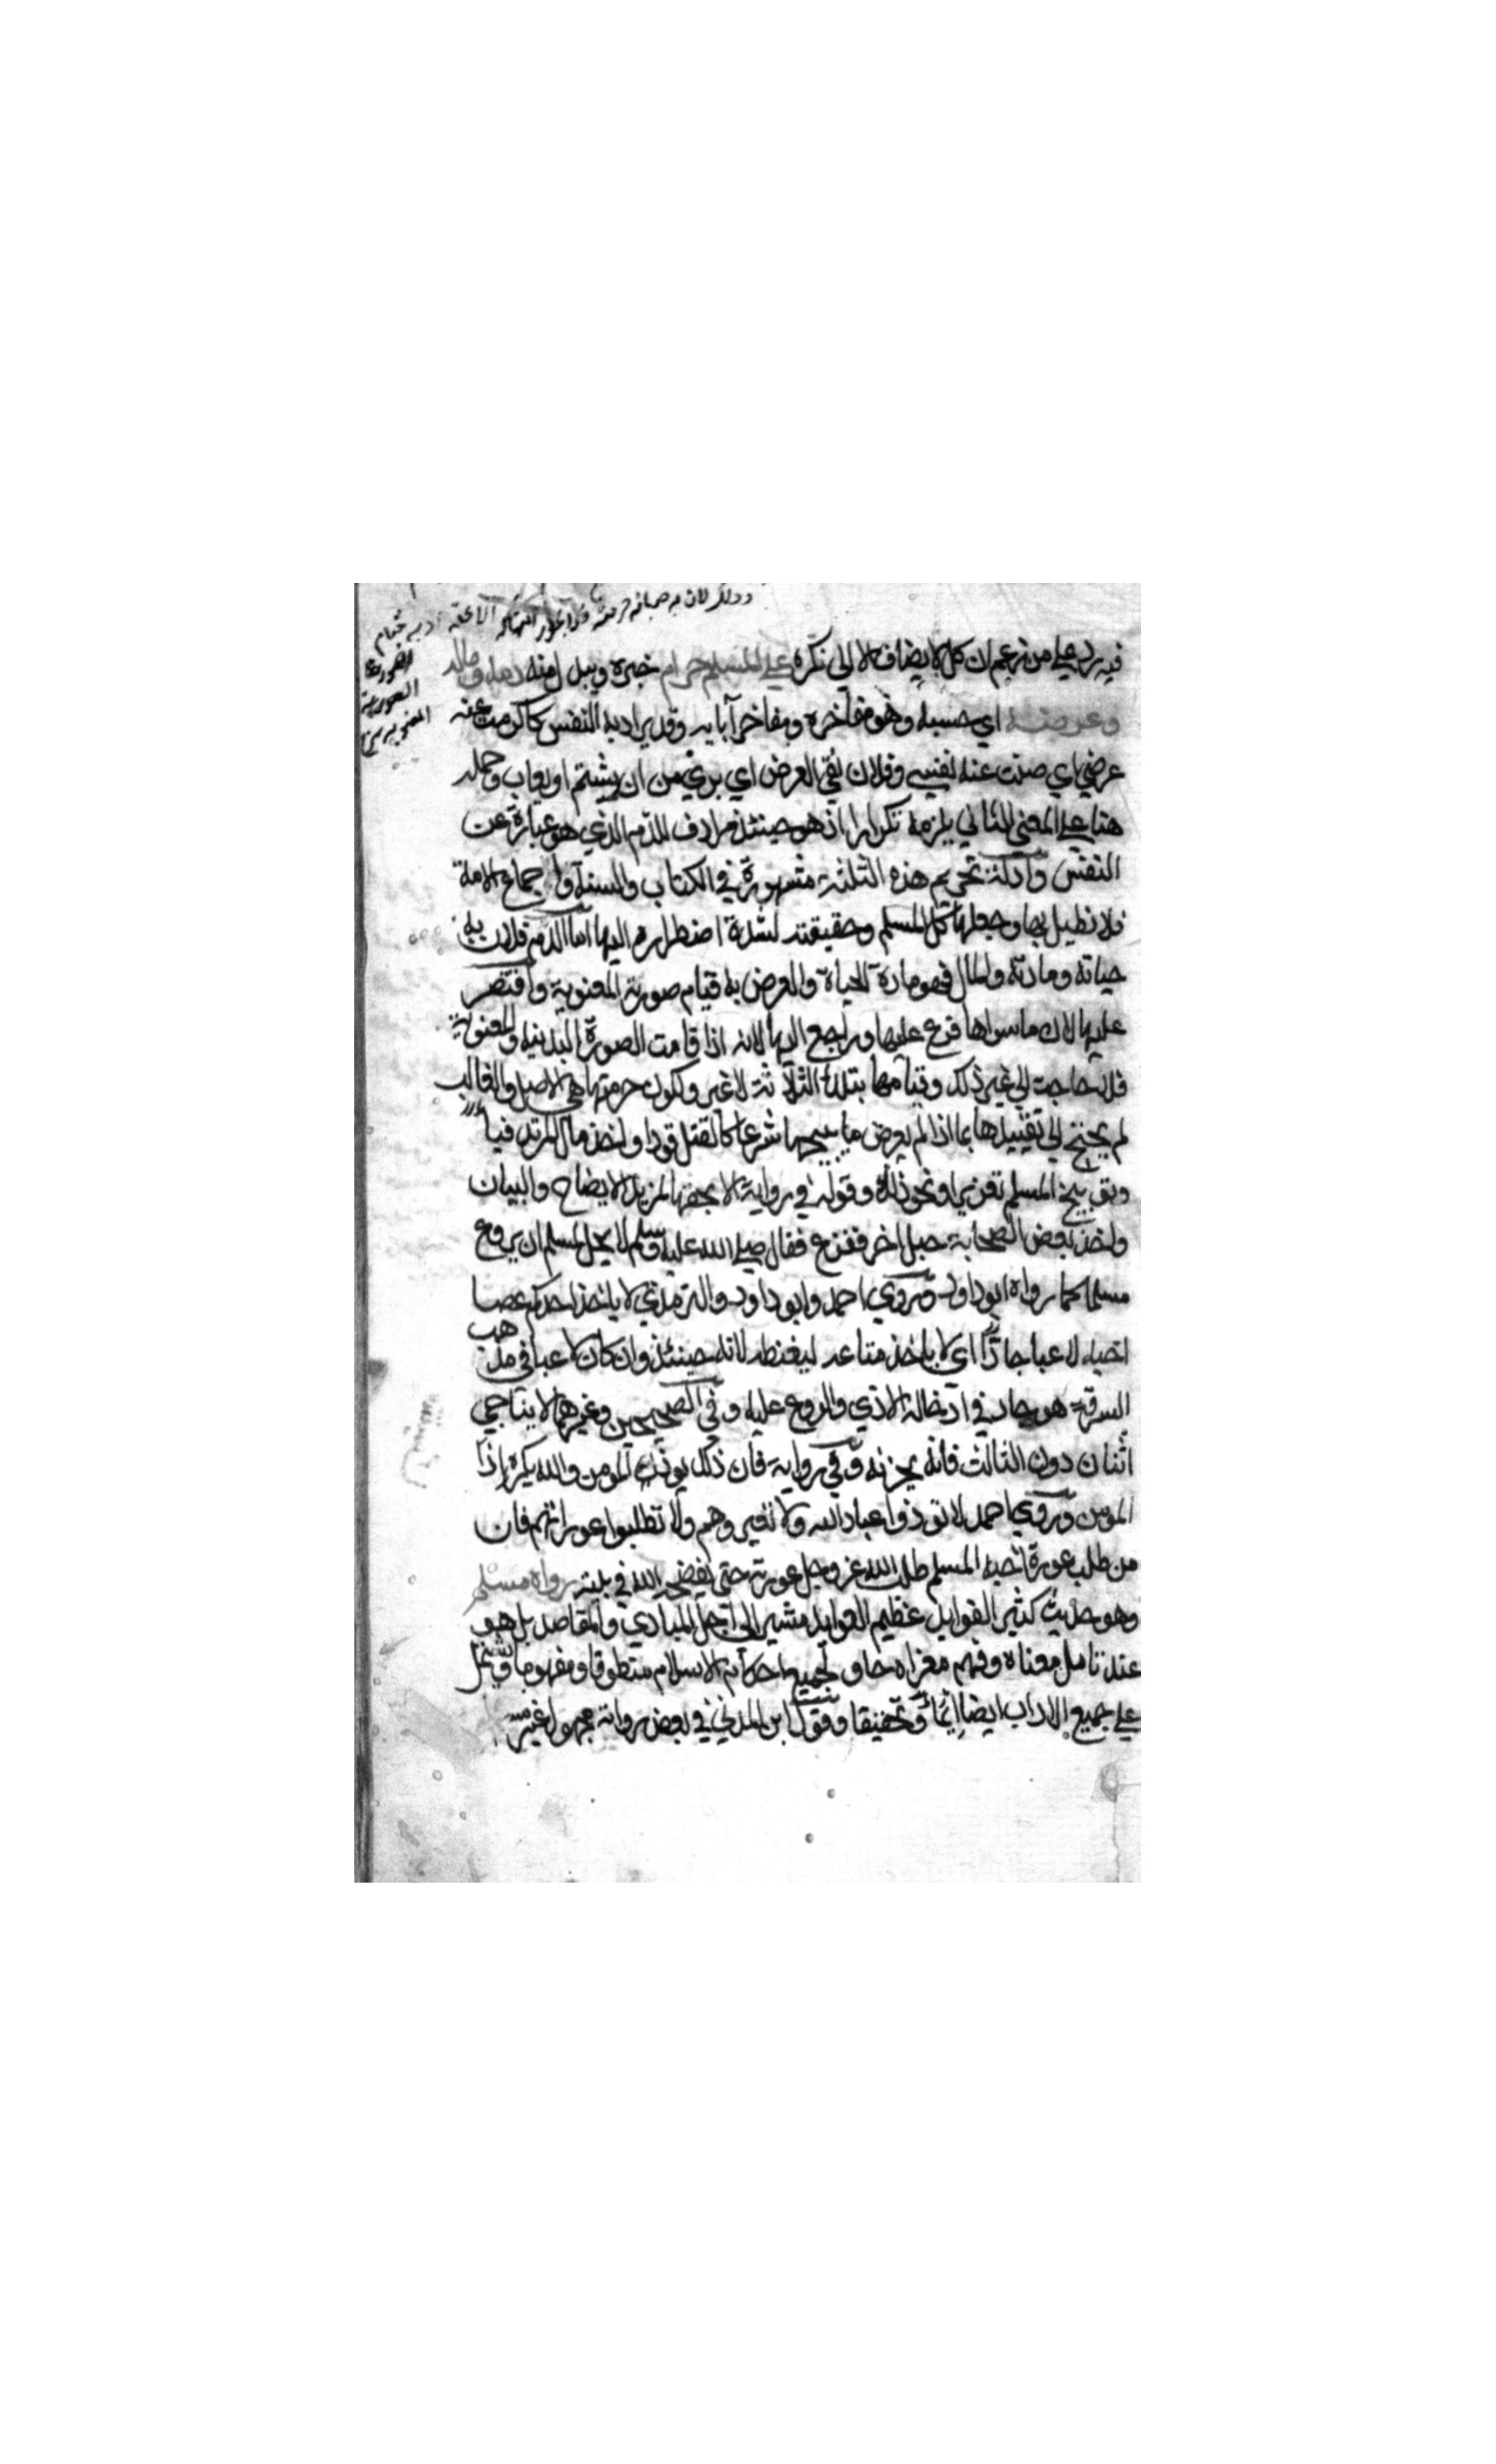 وذلك لان به صيانة حرمته
فيه رد علي من زعم ان كل لا يضاف الا الي نكرة علي المسلم حرام خبره ويبدل منه دمه وماله
وعرضه اي حسبه وهو مفاخره ومفاخر آبايه وقد يراد به النفس كاكرمت عنه
عرضي اي صنت عنه نفسي وفلان نقي العرض اي بري من ان يشتم او يعاب وحمله
هنا علي المعني الثاني يلزمه تكرار اذ هو حينئذ مرادف للدم الذي هو عبارة عن
النفس وادلة تحريم هذه الثلثة مشهورة في الكتاب والسنة واجماع الامة
فلا نطيل بها وجعلها كل المسلم وحقيقته لشدة اضطراره اليها اما الدم فلان به
حياته ومادته والمال فهو مادة الحياة والعرض به قيام صورته المعنوية واقتصر
عليها لان ما سواها فرع عليها وراجع اليها لانه اذا قامت الصورة البدنية والمعنوية
فلا حاجة الي غير ذلك وقيامها بتلك الثلاثة لا غير ولكون حرمتها هي الاصل والغالب
لم يحتج الي تقييدها بما اذا لم يعرض ما يبيحها شرعا كالقتل قودا واخذ مال المرتد فيا
وتوبيخ المسلم تعزيرا ونحو ذلك وقوله في رواية الا بحقها لمزيد الايضاح والبيان
واخذ بعض الصحابة حبل اخر ففزع فقال صلي الله عليه وسلم لا يحل لمسلم ان يروع
مسلما كما رواه ابو داود وروي احمد وابو داود والترمذي لا ياخذ احدكم عصا
اخيه لاعبا جادا اي لا ياخذ متاعه ليغيظه لانه حينئذ وان كان لاعبا في مذهب
السرقة هو جاد في ادخاله الاذي والروع عليه وفي الصحيحين وغيرهما لا يتناجي
اثنان دون الثالث فانه يحزنه وفي رواية فان ذلك يوذي المومن والله يكره اذا
المومن وروي احمد لا توذوا عباد الله ولا تعيروهم ولا تطلبوا عوراتهم فان
من طلب عورة اخيه المسلم طلب الله عز وجل عورته حتى يفضحه الله في بيته رواه مسلم
وهو حديث كثير الفوايد عظيم العوايد مشير الي اجل المبادي والمقاصد بل هو
عند تامل معناه وفهم مغزاه حاو لجميع احكام الاسلام منطوقا ومفهوما ومشتمل
علي جميع الاداب ايضا ايماء وتحقيقا وقول ابن المديني في بعض رواته مجهول غير